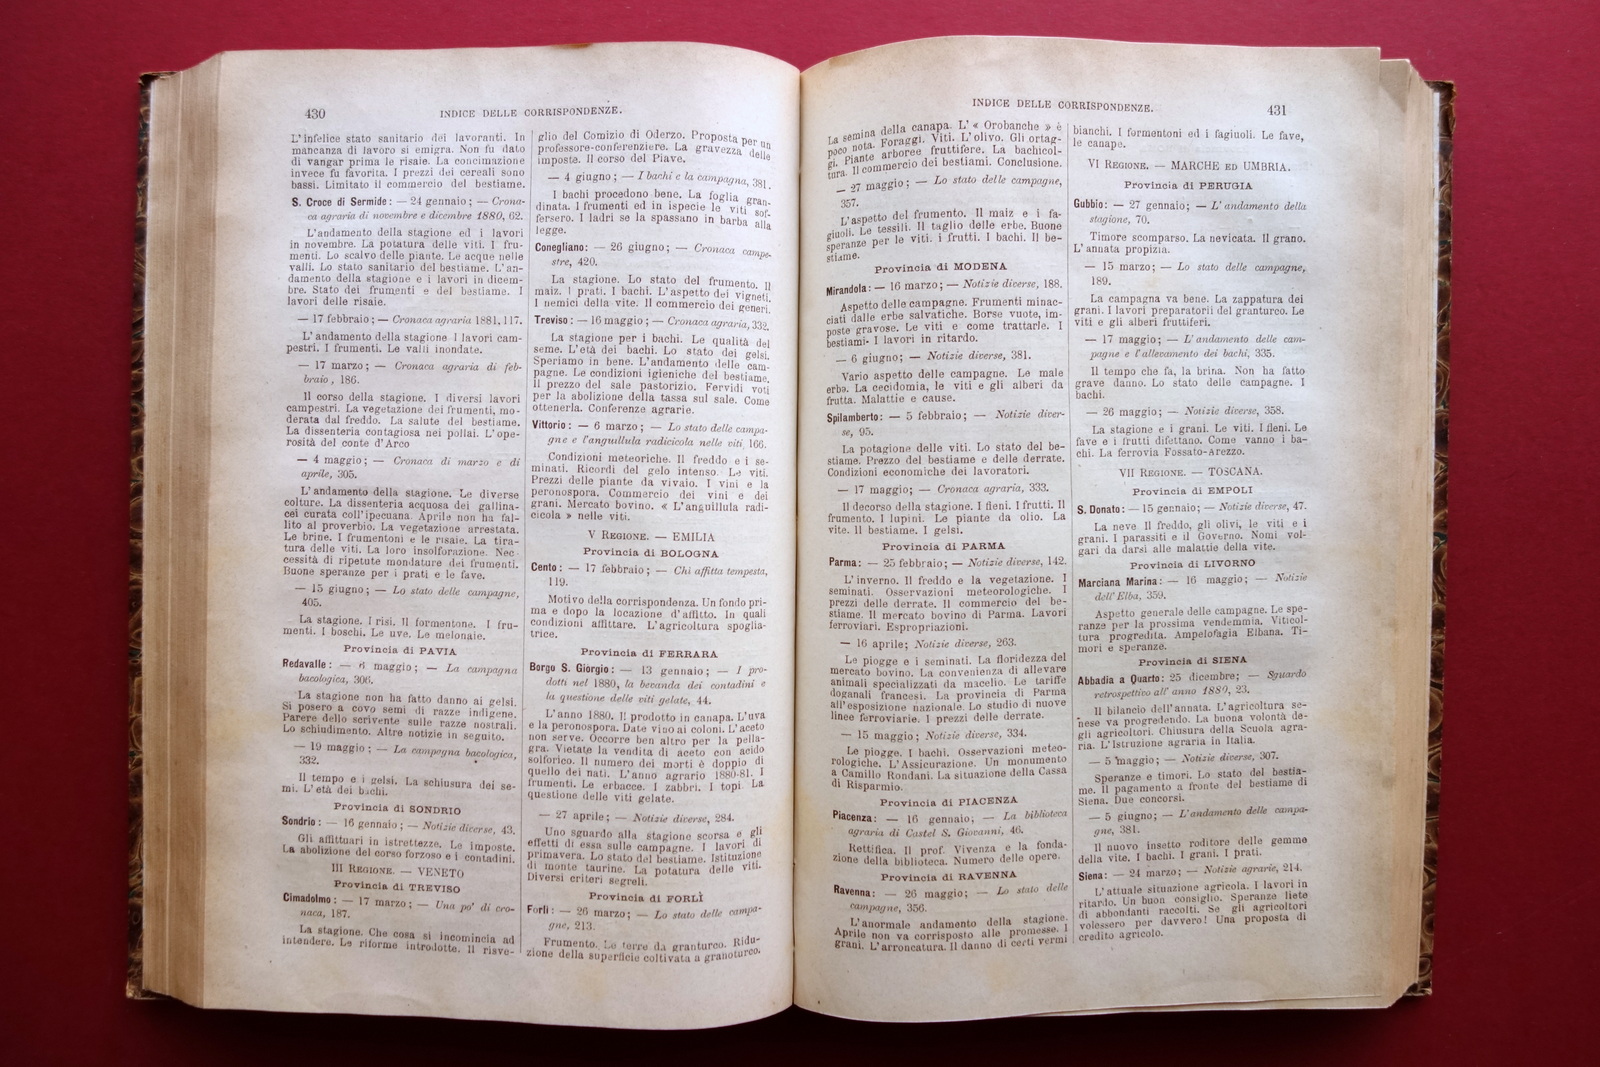 430
INDICE DELLE CORRISPONDENZE.
L'infelice stato sanitario dei lavoranti. In
mancanza di lavoro si emigra. Non fu dato
di vangar prima le risaie. La concimazione
invece fu favorita. I prezzi dei cereali sono
bassi. Limitato il commercio del bestiame.
S. Croce di Sermide: — 24 gennaio; — Crona-
ca agraria di novembre e dicembre 1880, 62.
L'andamento della stagione ed i lavori
in novembre. La potatura delle viti. I fru-
menti. Lo scalvo delle piante. Le acque nelle
valli. Lo stato sanitario del bestiame. L'an-
damento della stagione e i lavori in dicem-
bre. Stato dei frumenti e del bestiame. I
lavori delle risaie.
— 17 febbraio; — Cronaca agraria 1881, 117.
L'andamento della stagione I lavori cam-
pestri. I frumenti. Le valli inondate.
— 17 marzo; — Cronaca agraria di feb-
braio, 186.
Il corso della stagione. I diversi lavori
campestri. La vegetazione dei frumenti, mo-
derata dal freddo. La salute del bestiame.
La dissenteria contagiosa nei pollai. L'ope-
rosità del conte d'Arco
— 4 maggio; — Cronaca di marzo e di
aprile, 305.
L'andamento della stagione. Le diverse
colture. La dissenteria acquosa dei gallina-
cei curata coll'ipecuana. Aprile non ha fal-
lito al proverbio. La vegetazione arrestata.
Le brine. I frumentoni e le risaie. La tira-
tura delle viti. La loro insolforazione. Nec
cessità di ripetute mondature dei frumenti.
Buone speranze per i prati e le fave.
— 15 giugno; — Lo stato delle campagne,
405.
La stagione. I risi. Il formentone. I fru-
menti. I boschi. Le uve. Le melonaie.
Provincia di PAVIA
Redavalle: — 6 maggio; — La campagna
bacologica, 306.
La stagione non ha fatto danno ai gelsi.
Si posero a covo semi di razze indigene.
Parere dello scrivente sulle razze nostrali.
Lo schiudimento. Altre notizie in seguito.
— 19 maggio; — La campagna bacologica,
332.
Il tempo e i gelsi. La schiusura dei se-
mi. L'età dei bachi.
Provincia di SONDRIO
Sondrio: — 16 gennaio; — Notizie diverse, 43.
Gli affittuari in istrettezze. Le imposte.
La abolizione del corso forzoso e i contadini.
III REGIONE. — VENETO
Provincia di TREVISO
Cimadolmo: — 17 marzo; — Una po' di cro-
naca, 187.
La stagione. Che cosa si incomincia ad
intendere. Le riforme introdotte. Il risve-
glio del Comizio di Oderzo. Proposta per un
professore-conferenziere. La gravezza delle
imposte. Il corso del Piave.
— 4 giugno; — I bachi e la campagna, 381.
I bachi procedono bene. La foglia gran-
dinata. I frumenti ed in ispecie le viti sof-
fersero. I ladri se la spassano in barba alla
legge.
Conegliano: — 26 giugno; — Cronaca campe-
stre, 420.
La stagione. Lo stato del frumento. Il
maiz. I prati. I bachi. L'aspetto dei vigneti.
I nemici della vite. Il commercio dei generi.
Treviso: — 16 maggio; — Cronaca agraria, 332.
La stagione per i bachi. Le qualità del
seme. L'età dei bachi. Lo stato dei gelsi.
Speriamo in bene. L'andamento delle cam-
pagne. Le condizioni igieniche del bestiame.
Il prezzo del sale pastorizio. Fervidi voti
per la abolizione della tassa sul sale. Come
ottenerla. Conferenze agrarie.
Vittorio: — 6 marzo; — Lo stato delle campa-
gne e l'anguillula radicicola nelle viti, 166.
Condizioni meteoriche. Il freddo e i se-
minati. Ricordi del gelo intenso. Le viti.
Prezzi delle piante da vivaio. I vini e la
peronospora. Commercio dei vini e dei
grani. Mercato bovino. « L'anguillula radi-
cicola » nelle viti.
V REGIONE. — EMILIA
Provincia di BOLOGNA
Cento: — 17 febbraio; — Chi affitta tempesta,
119.
Motivo della corrispondenza. Un fondo pri-
ma e dopo la locazione d'affitto. In quali
condizioni affittare. L'agricoltura spoglia-
trice.
Provincia di FERRARA
Borgo S. Giorgio: — 13 gennaio; — I pro-
dotti nel 1880, la bevanda dei contadini e
la questione delle viti gelate, 44.
L'anno 1880. Il prodotto in canapa. L'uva
e la peronospora. Date vino ai coloni. L'aceto
non serve. Occorre ben altro per la pella-
gra. Vietate la vendita di aceto con acido
solforico. Il numero dei morti è doppio di
quello dei nati. L'anno agrario 1880-81. I
frumenti. Le erbacce. I zabbri. I topi La
questione delle viti gelate.
— 27 aprile; — Notizie diverse, 284.
Uno sguardo alla stagione scorsa e gli
effetti di essa sulle campagne. I lavori di
primavera. Lo stato del bestiame. Istituzione
di monte taurine. La potatura delle viti.
Diversi criteri segreli.
Provincia di FORLÌ
Forlì: — 26 marzo; — Lo stato delle campa-
gne, 213.
Frumento. Le terre da granturco. Ridu-
zione della superficie coltivata a granoturco.
INDICE DELLE CORRISPONDENZE.
431
La semina della canapa. L' « Orobanche » è
poco nota. Foraggi. Viti. L'olivo. Gli ortag-
gi. Piante arboree fruttifere. La bachicol-
tura. Il commercio dei bestiami. Conclusione.
— 27 maggio; — Lo stato delle campagne,
357.
L'aspetto del frumento. Il maiz e i fa-
giuoli. Le tessili. Il taglio delle erbe. Buone
speranze per le viti. i frutti. I bachi. Il be-
stiame.
Provincia di MODENA
Mirandola: — 16 marzo; — Notizie diverse, 188.
Aspetto delle campagne. Frumenti minac-
ciati dalle erbe salvatiche. Borse vuote, im-
poste gravose. Le viti e come trattarle. I
bestiami- I lavori in ritardo.
— 6 giugno; — Notizie diverse, 381.
Vario aspetto delle campagne. Le male
erbe. La cecidomia, le viti e gli alberi da
frutta. Malattie e cause.
Spilamberto: — 5 febbraio; — Notizie diver-
se, 95.
La potagione delle viti. Lo stato del be-
stiame. Prezzo del bestiame e delle derrate.
Condizioni economiche dei lavoratori.
— 17 maggio; — Cronaca agraria, 333.
Il decorso della stagione. I fieni. I frutti. Il
frumento. I lupini. Le piante da olio. La
vite. Il bestiame. I gelsi.
Provincia di PARMA
Parma: — 25 febbraio; — Notizie diverse, 142.
L'inverno. Il freddo e la vegetazione. I
seminati. Osservazioni meteorologiche. I
prezzi delle derrate. Il commercio del be-
stiame. Il mercato bovino di Parma. Lavori
ferroviari. Espropriazioni.
— 16 aprile; Notizie diverse, 263.
Le piogge e i seminati. La floridezza del
mercato bovino. La convenienza di allevare
animali specializzati da macelio. Le tariffe
doganali francesi. La provincia di Parma
all'esposizione nazionale. Lo studio di nuove
linee ferroviarie. I prezzi delle derrate.
— 15 maggio; — Notizie diverse, 334.
Le piogge. I bachi. Osservazioni meteo-
rologiche. L'Assicurazione. Un monumento
a Camillo Rondani. La situazione della Cassa
di Risparmio.
Provincia di PIACENZA
Piacenza: — 16 gennaio; — La biblioteca
agraria di Castel S. Giovanni, 46.
Rettifica. Il prof. Vivenza e la fonda-
zione della biblioteca. Numero delle opere.
Provincia di RAVENNA
Ravenna: — 26 maggio; — Lo stato delle
campagne, 356.
L'anormale andamento della stagione.
Aprile non va corrisposto alle promesse. I
grani. L'arroncatura. Il danno di certi vermi
bianchi. I formentoni ed i faginoli. Le fave,
le canape.
VI REGIONE. — MARCHE ED UMBRIA.
Provincia di PERUGIA
Gubbio: — 27 gennaio; — L'andamento della
stagione, 70.
Timore scomparso. La nevicata. Il grano.
L'annata propizia.
— 15 marzo; — Lo stato delle campagne,
189.
La campagna va bene. La zappatura dei
grani. I lavori preparatorii del granturco. Le
viti e gli alberi fruttiferi.
— 17 maggio; — L'andamento delle cam-
pagne e l'allevamento dei bachi, 335.
Il tempo che fa, la brina. Non ha fatto
grave danno. Lo stato delle campagne. I
bachi.
— 26 maggio; — Notizie diverse, 358.
La stagione e i grani. Le viti. I fieni. Le
fave e i frutti difettano. Come vanno i ba-
chi. La ferrovia Fossato-Arezzo.
VII REGIONE. — TOSCANA.
Provincia di EMPOLI
S. Donato: — 15 gennaio; — Notizie diverse, 47.
La neve. Il freddo, gli olivi, le viti e i
grani. I parassiti e il Governo. Nomi vol-
gari da darsi alle malattie della vite.
Provincia di LIVORNO
Marciana Marina: — 16 maggio; — Notizie
dell'Elba, 359.
Aspetto generale delle campagne. Le spe-
ranze per la prossima vendemmia. Viticol-
tura progredita. Ampelofagia Elbana. Ti-
mori e speranze.
Provincia di SIENA
Abbadia a Quarto: 25 dicembre; — Sguardo
retrospettivo all'anno 1880, 23.
Il bilancio dell'annata. L'agricoltura se-
nese va progredendo. La buona volontà de-
gli agricoltori. Chiusura della Scuola agra-
ria. L'Istruzione agraria in Italia.
— 5 maggio; — Notizie diverse, 307.
Speranze e timori. Lo stato del bestia-
me. Il pagamento a fronte del bestiame di
Siena. Due concorsi.
— 5 giugno; — L'andamento delle campa-
gne, 381.
Il nuovo insetto roditore delle gemme
della vite. I bachi. I grani. I prati.
Siena: — 24 marzo; — Notizie agrarie, 214.
L'attuale situazione agricola. I lavori in
ritardo. Un buon consiglio. Speranze liete
di abbondanti raccolti. Se gli agricoltori
volessero per davvero! Una proposta di
credito agricolo.